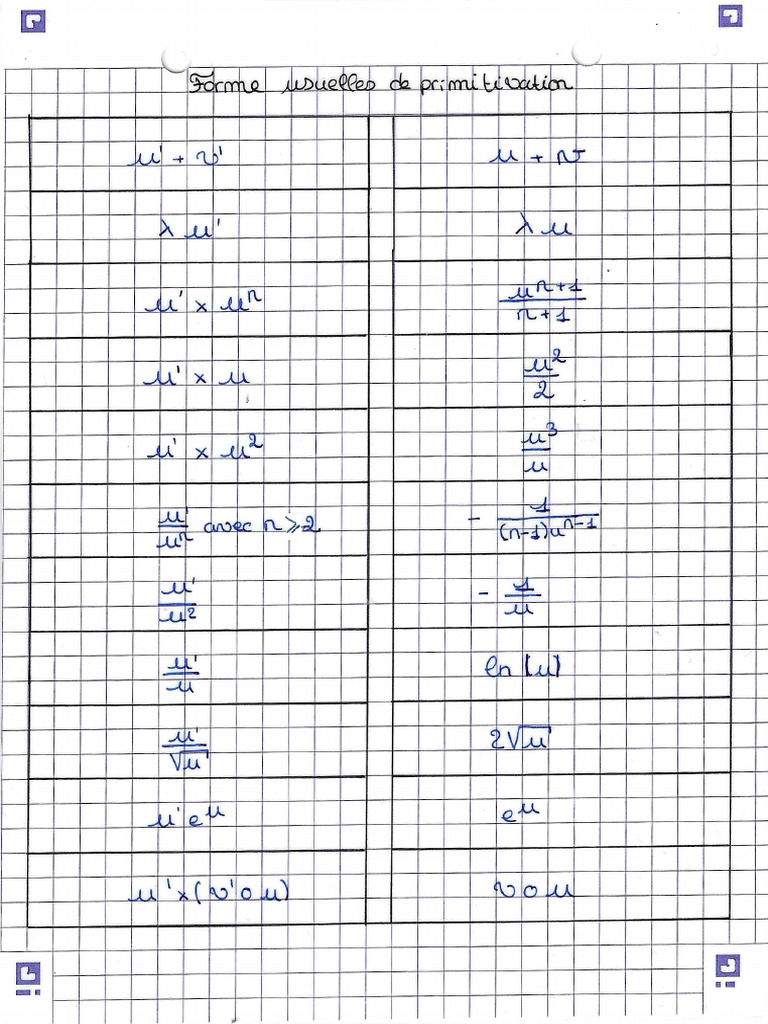 Forme usuelles de primitivation
u' + v' u + v
λ u' λ u
u' × uⁿ uⁿ⁺¹/n+1
u' × u u²/2
u' × u² u³/u
u'/uⁿ avec n ⩾ 2 - 1/(n-1)uⁿ⁻¹
u'/u² - 1/u
u'/u ln |u|
u'/√u 2√u
u'eᵘ eᵘ
u' × (v' o u) v o u